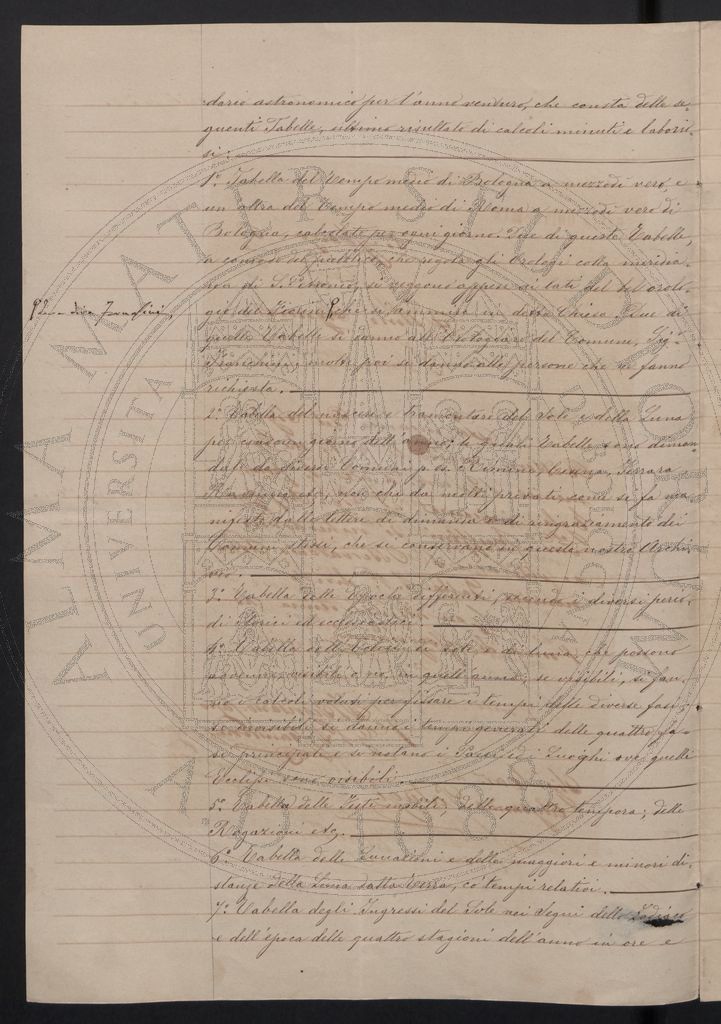 dario astronomico per l'anno venturo, che consta delle se-
guenti Tabelle, ultimo risultato di calcoli minuti e laborio-
si:
1.° Tabella del Tempo medio di Bologna a mezzodì vero, e
un altra del Tempo medio di Roma a mezzodì vero di
Bologna, calcolate per ogni giorno. Due di queste Tabelle,
a comodo del pubblico, che regola gli Orologi colla meridia-
na di S. Petronio, si vengono appese ai lati del bel orolo-
gio del che si ammira in detta Chiesa. Due di
quelle Tabelle si danno all' Orologiaro del Comune, Sig.r
molte poi se danno alle persone che ne fanno
richiesta.
2.° Tabella del nascere e tramontare del Sole e della Luna
per ciascun giorno dell'anno; le quali Tabelle sono diman-
date da diversi Comuni p. es. Rimini, Cesena, Ferrara
etc, non che da molti privati, come si fa ma-
nifesto dalle lettere di dimanda e di ringraziamento dei
Comuni stessi, che si conservano in questo nostro Archi-
vio.
3.° Tabella delle Epoche differenti, secondo i diversi perio-
di Storici ed ecclesiastici.
4.° Tabella delle Eclissi di Sole e di Luna, che possono
avvenire visibili o no, in quell'anno; se visibili, si fan-
no i calcoli voluti per fissare i tempi delle diverse fasi;
se invisibili si danno i tempi delle quattro fa-
si principali e si notano i Paesi ed i Luoghi ove quelle
Eclissi sono visibili.
5.° Tabella delle Feste mobili, delle quattro tempora, delle
Rogazioni etc.
6.° Tabella delle Lunazioni e delle maggiori e minori di-
stanze della Luna dalla Terra, co' tempi relativi.
7.° Tabella degli Ingressi del Sole nei Segni dello Zodiaco
e dell'epoca delle quattro stagioni dell'anno in ore e
ALMA MATER STUDIORUM
UNIVERSITA
A.D. 1088